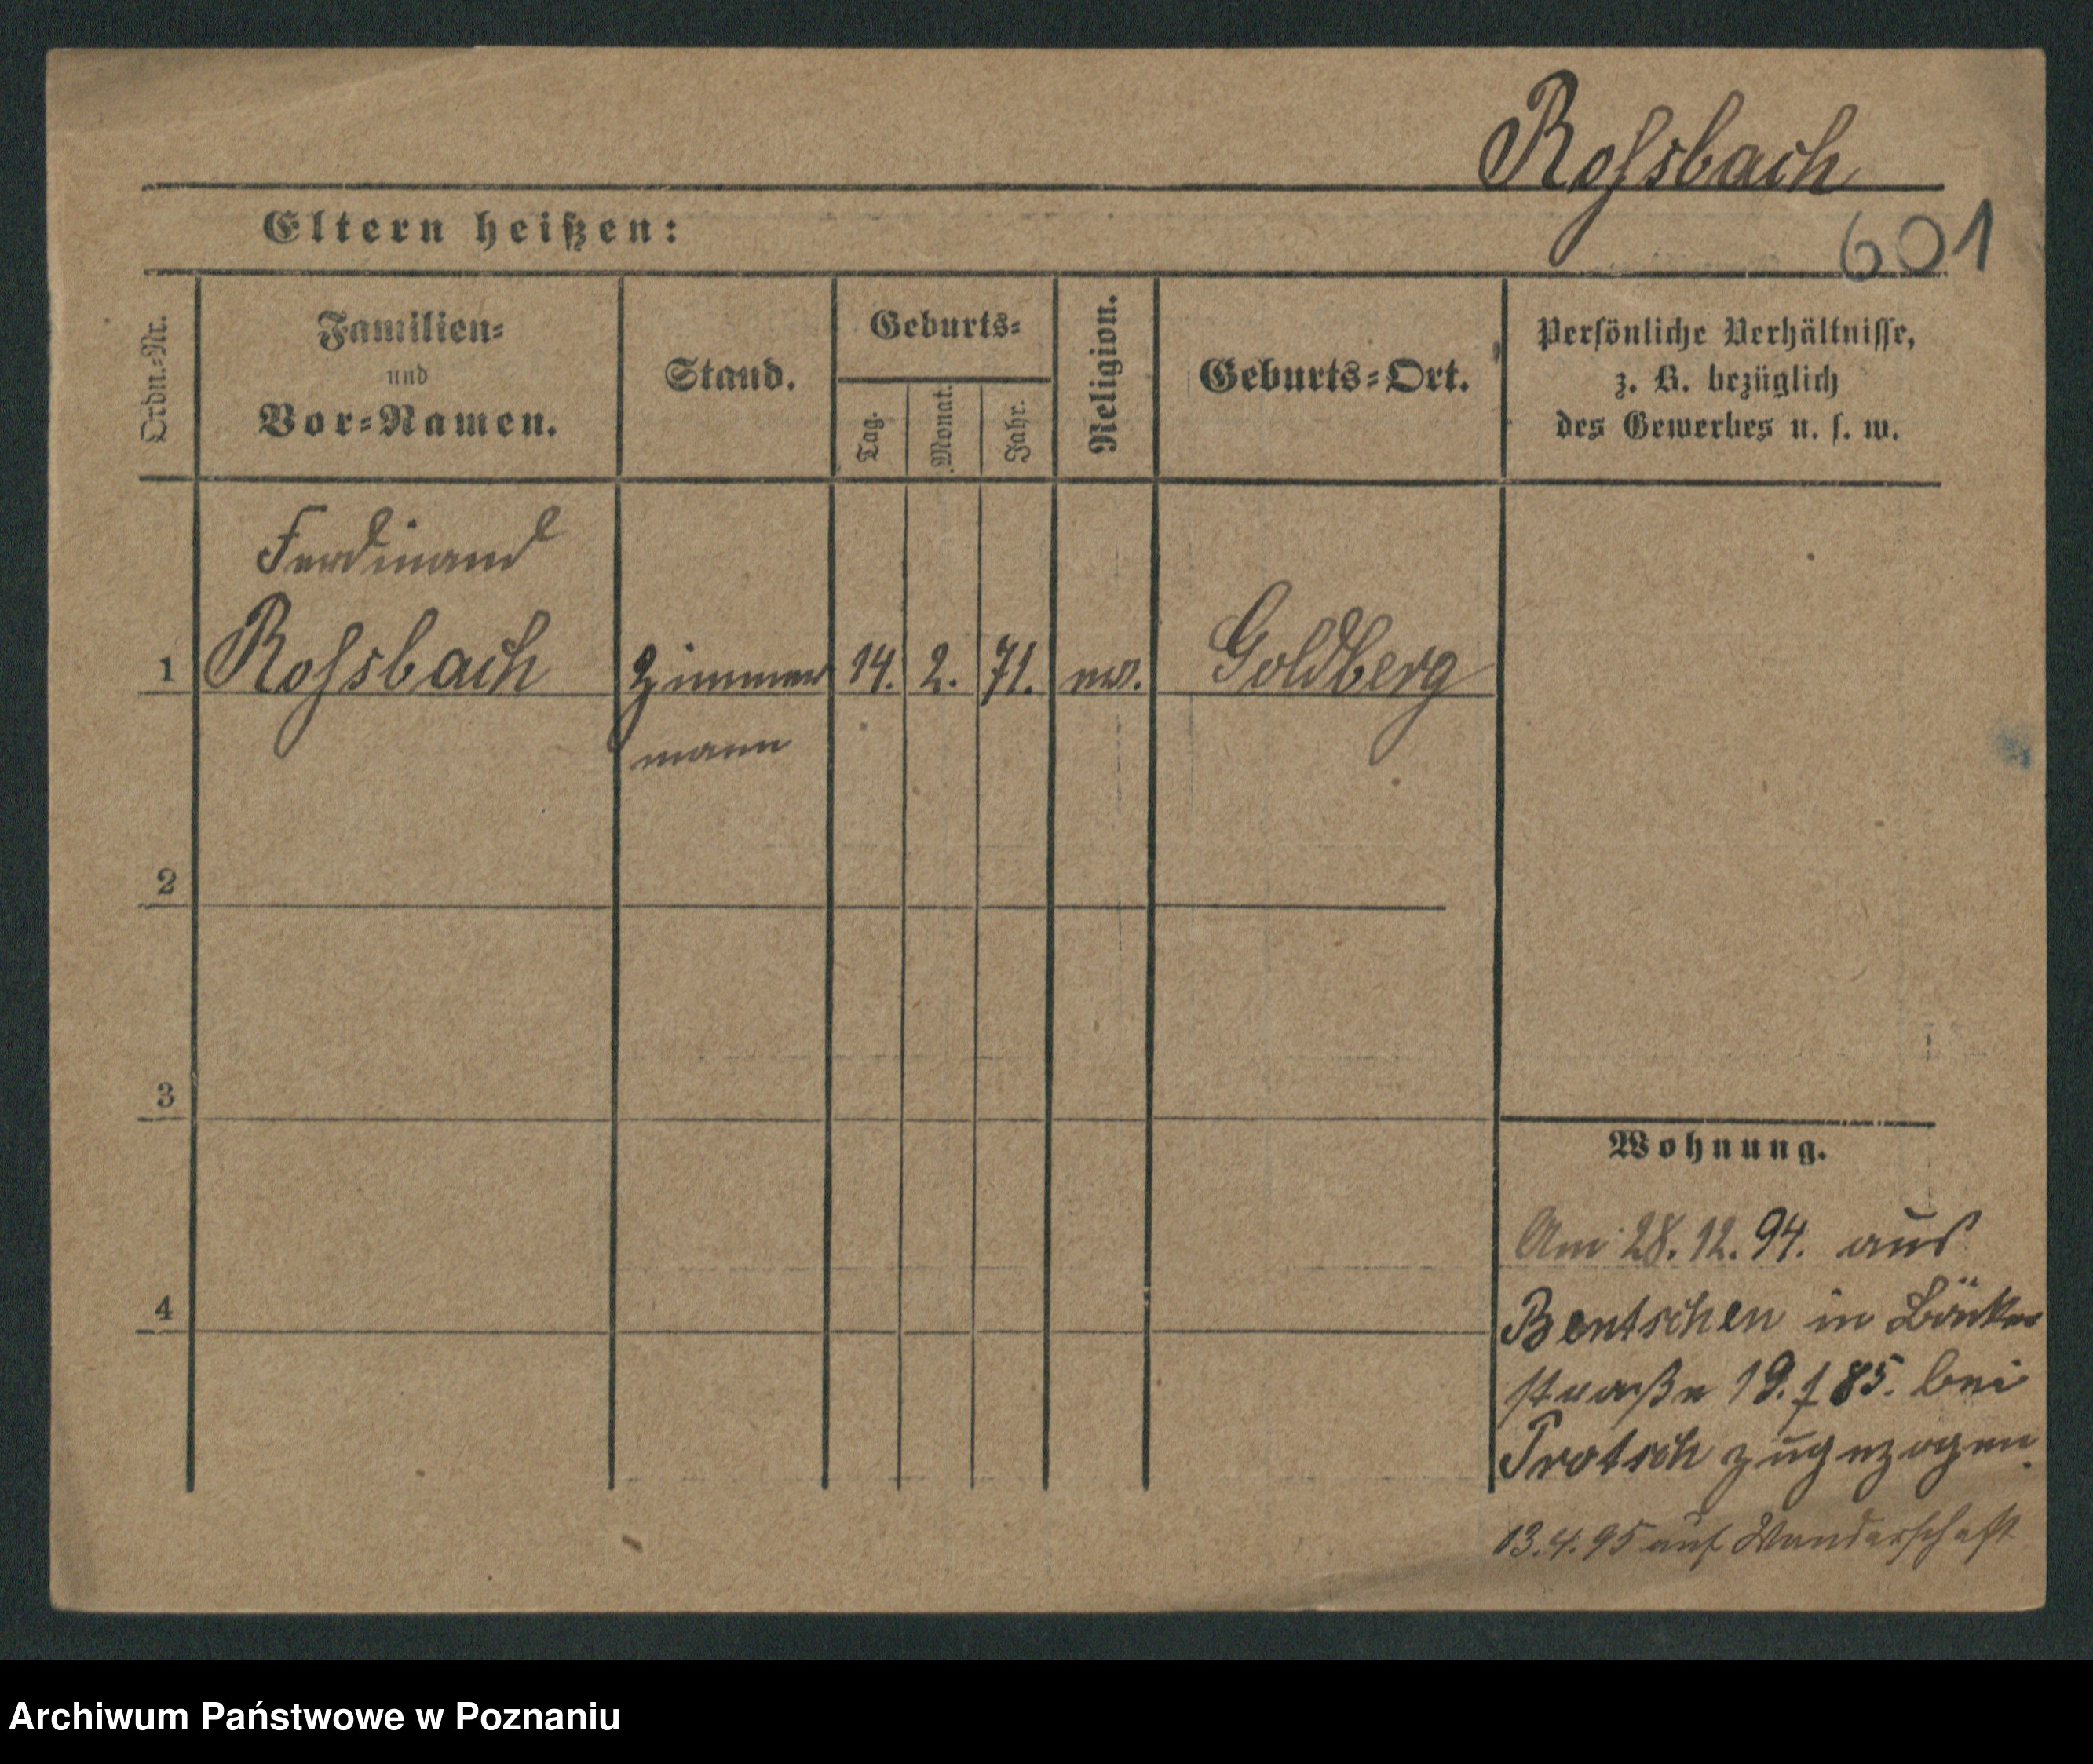 Roßsbach
601
Eltern heißen:
Ordn.-Nr.
Familien-
und
Vor-Namen.
Stand.
Geburts-
Tag.
Monat.
Jahr.
Religion.
Geburts-Ort.
Persönliche Verhältnisse,
z. B. bezüglich
des Gewerbes u. s. w.
Ferdinand
1 Roßsbach Zimmer 14. 2. 71. ev. Goldberg
mann
2
3
4
Wohnung.
Am 28.12.94. aus
Bentschen in
straße 19. 85. bei
Protsch zugezogen.
13.4.95 auf Wanderschaft
Archiwum Państwowe w Poznaniu